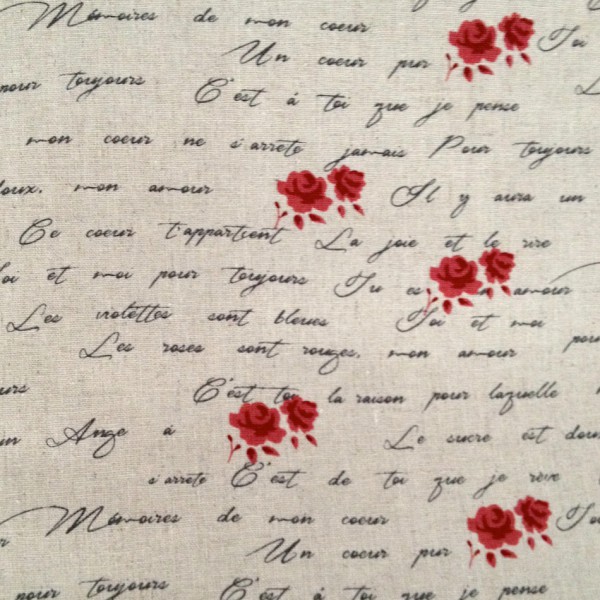 Mémoires de mon coeur
Un coeur pur Toi
pour toujours C'est à toi que je pense
mon coeur ne s'arrete jamais Pour toujours
doux, mon amour Il y aura un
Ce coeur t'appartient La joie et le rire
Toi et moi pour toujours Tu es un amour
Les violettes sont bleues Toi et moi
Les roses sont rouges, mon amour pour
C'est toi la raison pour laquelle
un Ange à Le sucre est doux
s'arrete C'est de toi que je rêve
Mémoires de mon coeur
Un coeur pur Toi
pour toujours C'est à toi que je pense